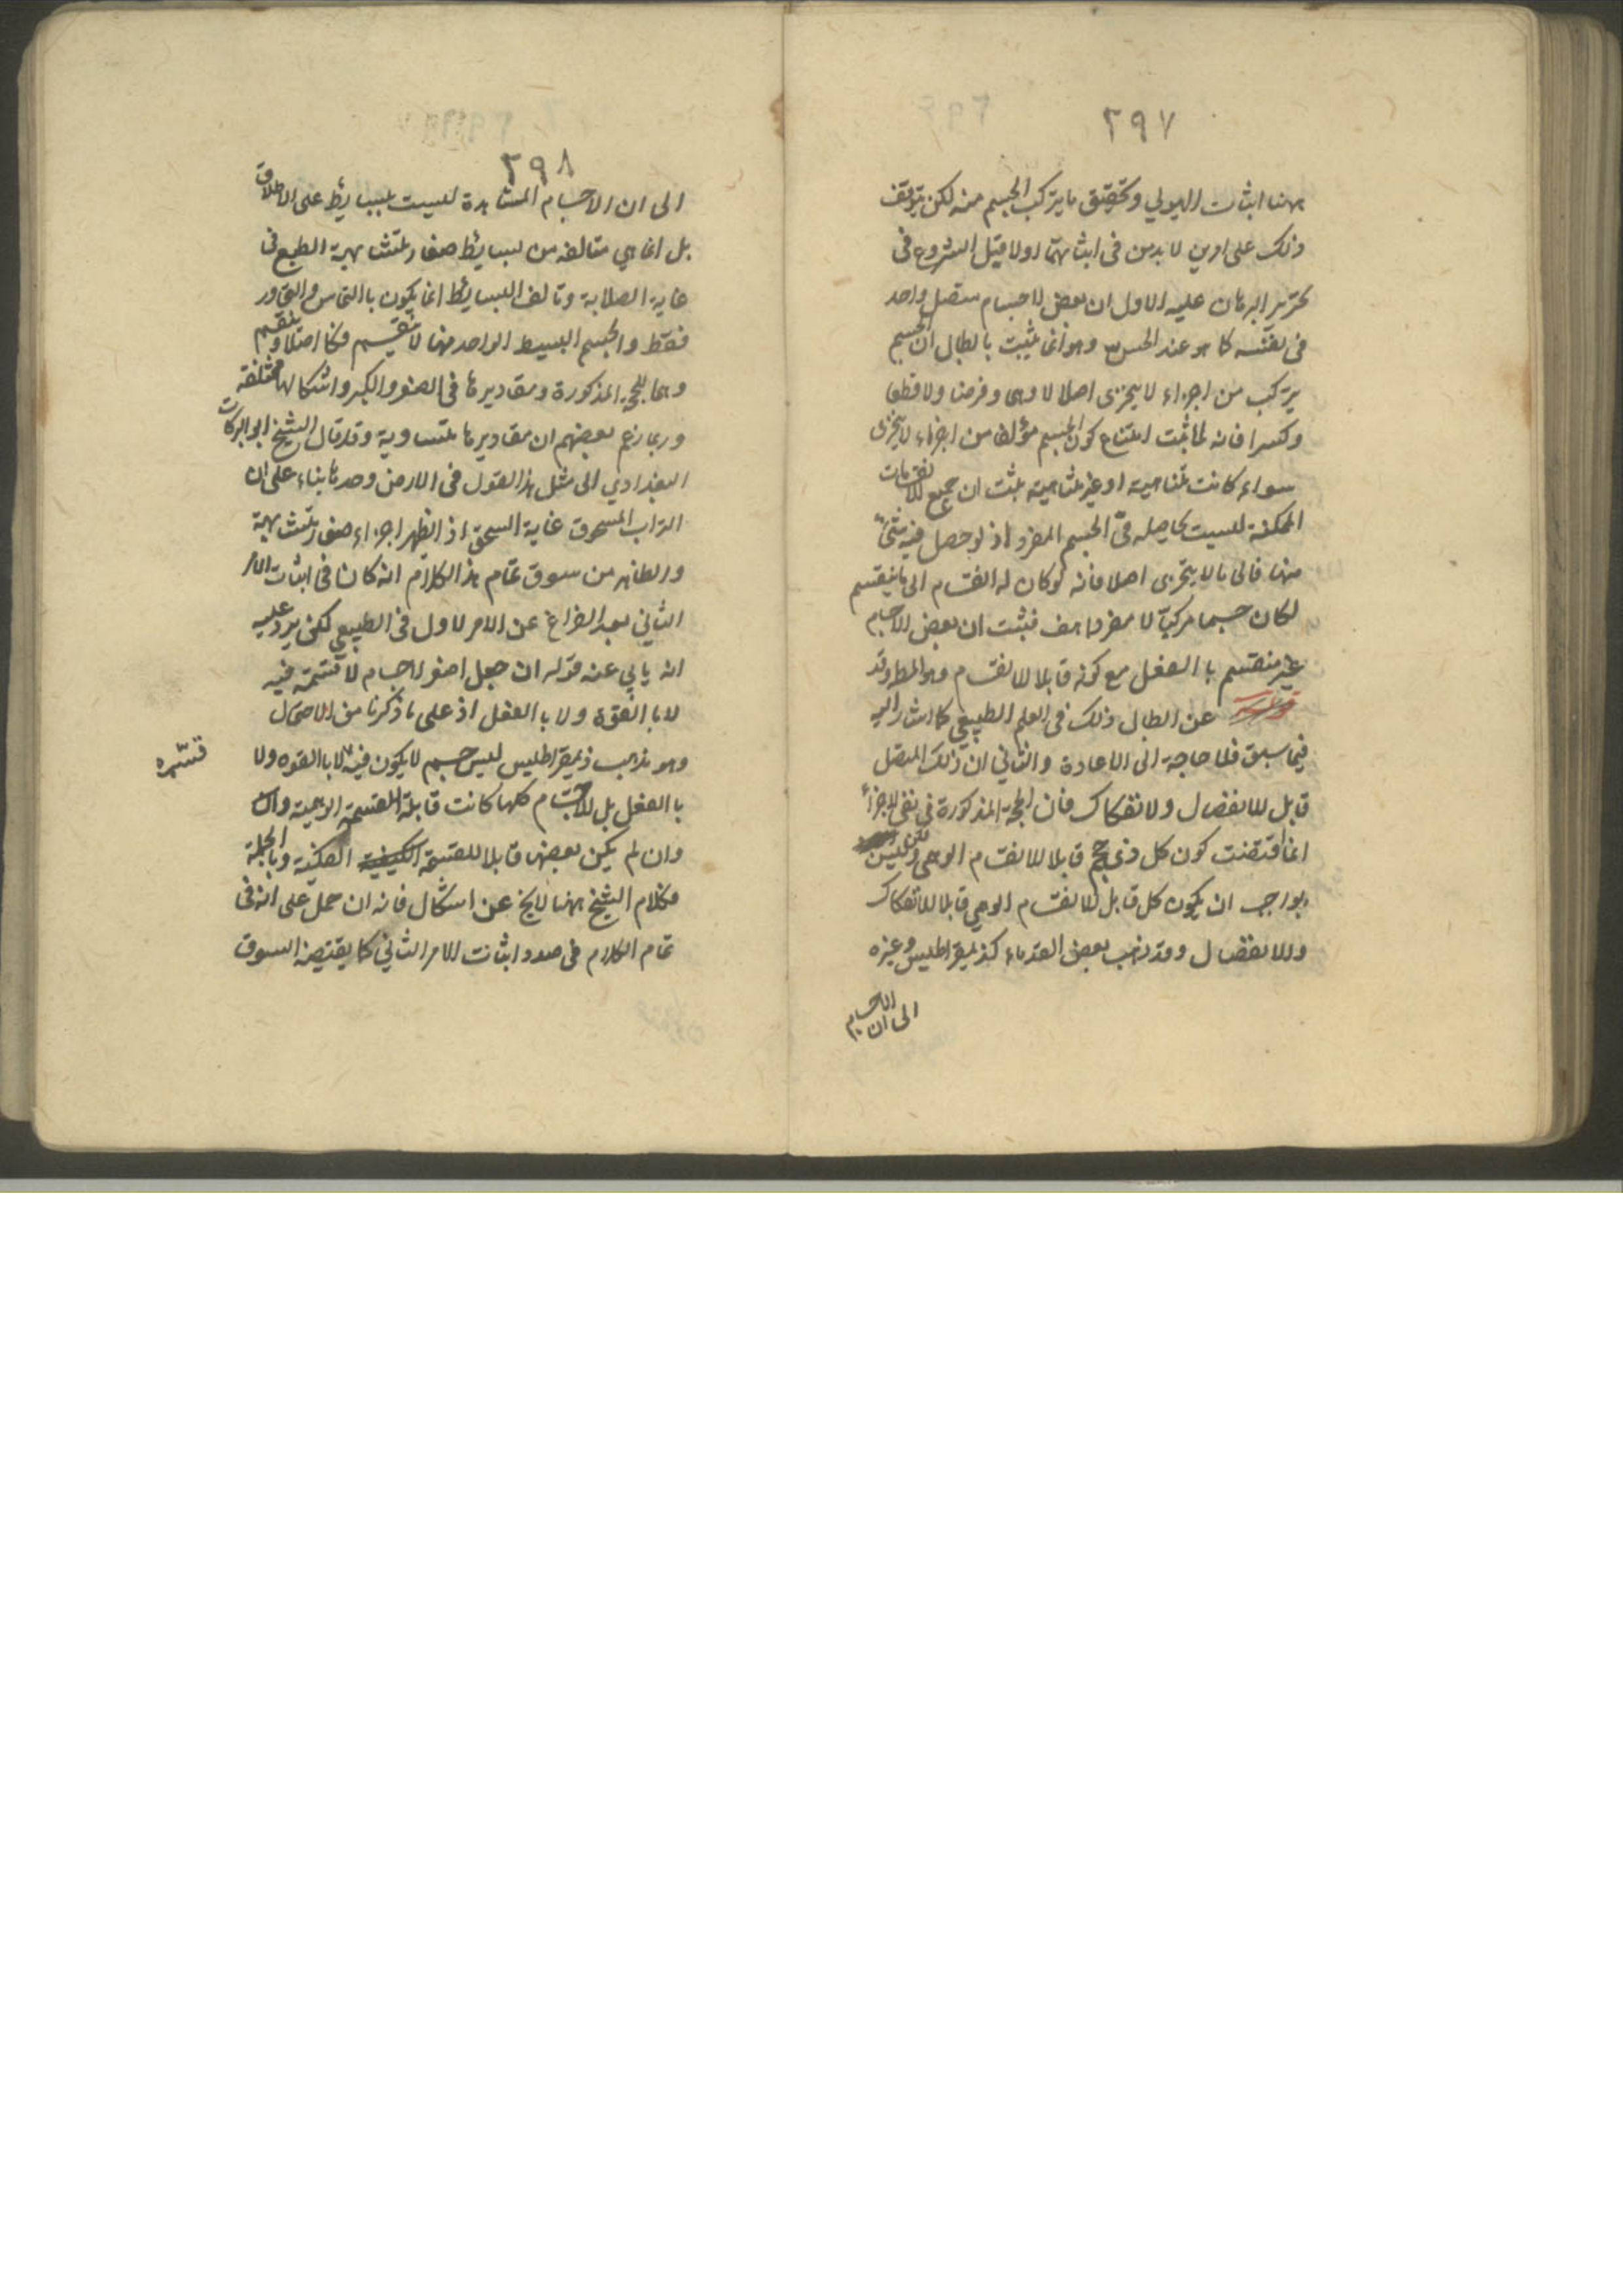 ٢٩٧
ههنا اثبات الهيولي وتحقيق ما يتركب الجسم منه لكن يتوقف
ذلك على امرين لا بد من في اثباتهما اولا قبل الشروع في
تحرير البرهان عليه الاول ان بعض الاجسام متصل واحد
في نفسه كما هو عند الحس وهو انما يثبت بابطال ان الجسم
يتركب من اجزاء لا يتجزى اصلا لا وهما وفرضا ولا قطعا
وكسرا فانه لما ثبت امتناع كون الجسم مؤلفا من اجزاء لا يتجزى
سواء كانت متناهية او غير متناهية ثبت ان جميع الانقسامات
الممكنة ليست بحاصله في الجسم المفرد اذ لو حصل فيه شئ
منها فالى ما لا يتجزى اصلا فانه لو كان له انقسام الى ما ينقسم
لكان جسما مركبا لا مفردا هف فثبت ان بعض الاجسام
غير منقسم باالفعل مع كونه قابلا للانقسام وهو المط وقد
عن ابطال ذلك في العلم الطبيعي كما اشار اليه
فيما سبق فلا حاجة الى الاعادة والثاني ان ذلك المتصل
قابل للانفصال ولانفكاك فان الحجة المذكورة في نفي الاجزاء
انما اقتضت كون كل ذي حجم قابلا للانقسام الوهمي ولكن ليس
بواجب ان يكون كل قابل للانقسام الوهمي قابلا للانفكاك
وللانفصال وقد ذهب بعض القدماء كذيمقراطيس وغيره
الى ان الاجسام
٢٩٨
الى ان الاجسام المشاهدة ليست ببسايط على الاطلاق
بل انما هي متالفه من بسايط صغار متشابهة الطبع في
غاية الصلابة وتالف البسايط انما يكون باالتماس والتجاور
فقط والجسم البسيط الواحد منها لا ينقسم فكا اصلا وينقسم
وهما للحجة المذكورة ومقاديرها في الصغر والكبر واشكالها مختلفة
وربما زعم بعضهم ان مقاديرها متساوية وقد قال الشيخ ابو البركات
البغدادي الى مثل هذا القول في الارض وحدها بناء على ان
التراب المسحوق غاية السحق اذ انظهر اجزاء صغار متشابهة
والظاهر من سوق تمام هذا الكلام انه كان في اثبات الامر
الثاني بعد الفراغ عن الامر لاول في الطبيعي لكن يرد عليه
انه يابي عنه قوله ان جعل اصغر لاجسام لا قسمة فيه
لا باالقوة ولا باالفعل اذ على ما ذكرنا من الاحتمال
وهو مذهب ذيمقراطيس ليس جسم لا يكون فيه لا باالقوه ولا
قسمة
باالفعل بل الاجسام كلها كانت قابلة للقسمة الوهمية وان
وان لم يكن بعضها قابلا للقسمة الفكية وبالجملة
فكلام الشيخ ههنا لا يخ عن اشكال فانه ان حمل على انه في
تمام الكلام في صدد اثبات الامر الثاني كما يقتضيه السوق